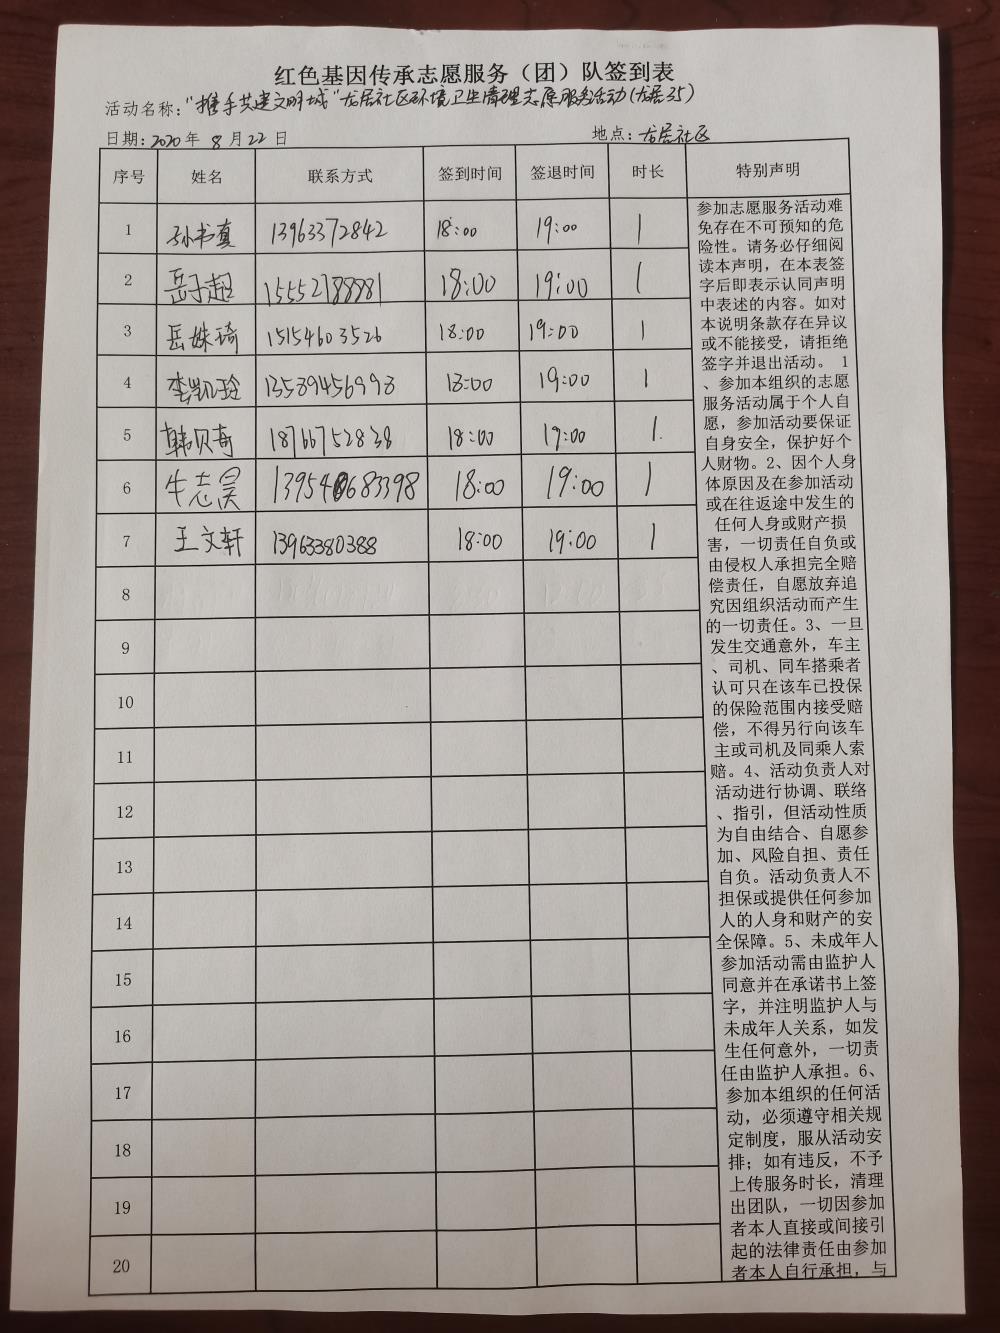 红色基因传承志愿服务（团）队签到表
活动名称："携手共建文明城"龙居社区环境卫生清理志愿服务活动(龙居35)
日期：2020年 8月22日 地点：龙居社区
序号 姓名 联系方式 签到时间 签退时间 时长 特别声明
1 孙书真 13963372842 18:00 19:00 1
2 岳子超 15552788881 18:00 19:00 1
3 岳姝琦 15154603526 18:00 19:00 1
4 李凯玲 13589456993 18:00 19:00 1
5 韩贝奇 18766752838 18:00 19:00 1
6 牛志昊 13954683398 18:00 19:00 1
7 王文轩 13963380388 18:00 19:00 1
8
9
10
11
12
13
14
15
16
17
18
19
20
参加志愿服务活动难
免存在不可预知的危
险性。请务必仔细阅
读本声明，在本表签
字后即表示认同声明
中表述的内容。如对
本说明条款存在异议
或不能接受，请拒绝
签字并退出活动。 1
、参加本组织的志愿
服务活动属于个人自
愿，参加活动要保证
自身安全，保护好个
人财物。2、因个人身
体原因及在参加活动
或在往返途中发生的
任何人身或财产损
害，一切责任自负或
由侵权人承担完全赔
偿责任，自愿放弃追
究因组织活动而产生
的一切责任。3、一旦
发生交通意外，车主
、司机、同车搭乘者
认可只在该车已投保
的保险范围内接受赔
偿，不得另行向该车
主或司机及同乘人索
赔。4、活动负责人对
活动进行协调、联络
、指引，但活动性质
为自由结合、自愿参
加、风险自担、责任
自负。活动负责人不
担保或提供任何参加
人的人身和财产的安
全保障。5、未成年人
参加活动需由监护人
同意并在承诺书上签
字，并注明监护人与
未成年人关系，如发
生任何意外，一切责
任由监护人承担。6、
参加本组织的任何活
动，必须遵守相关规
定制度，服从活动安
排；如有违反，不予
上传服务时长，清理
出团队，一切因参加
者本人直接或间接引
起的法律责任由参加
者本人自行承担，与